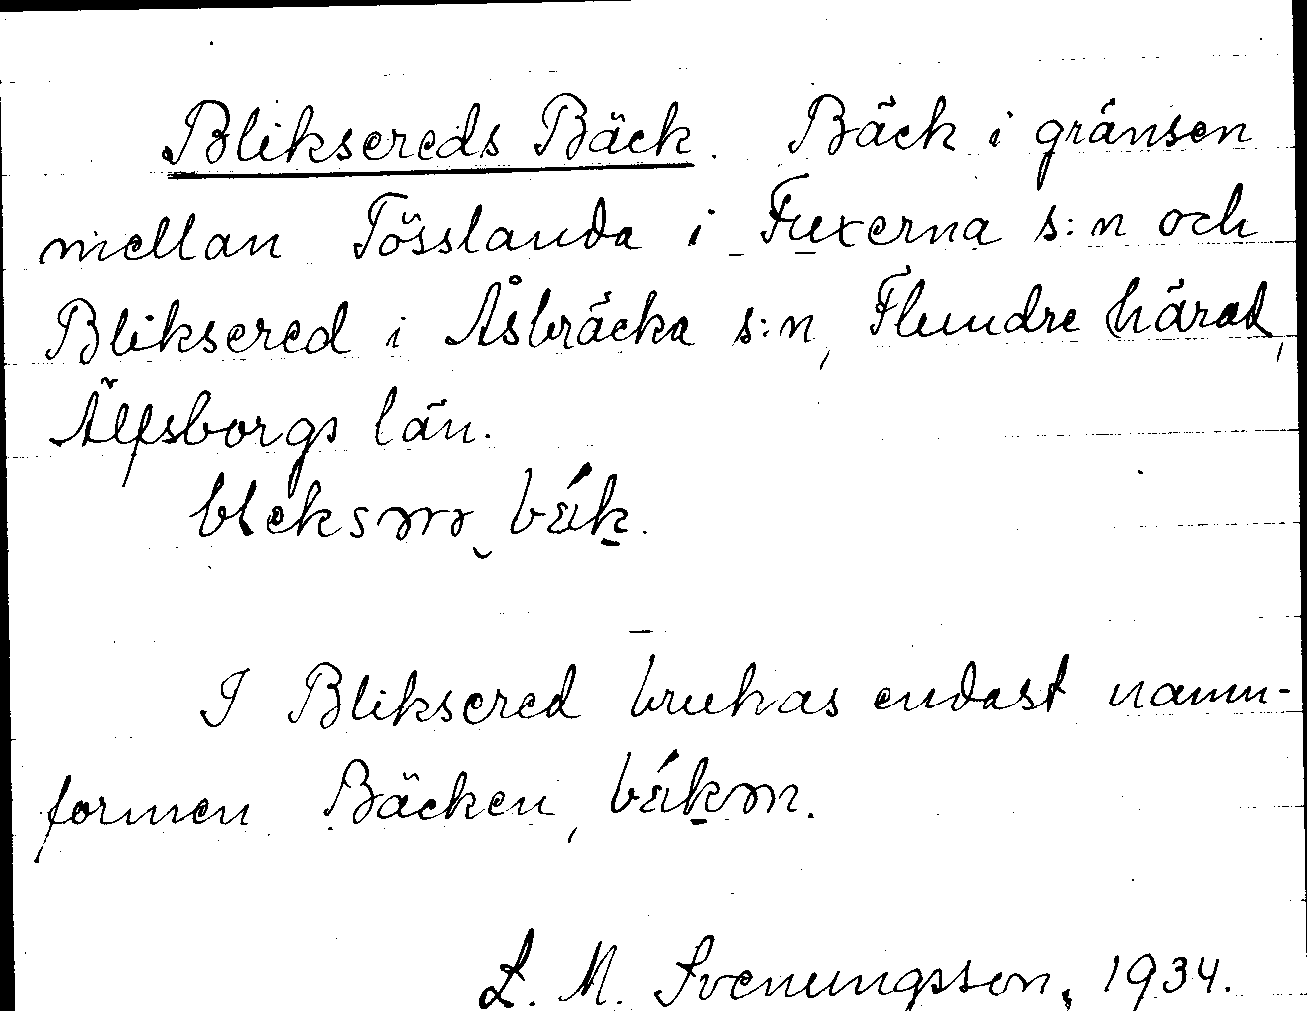 Bliksereds Bäck. Bäck i gränsen
mellan Tösslanda i Fuxerna s:n och
Bliksered i Åsbräcka s:n, Flundre härad,
Älfsborgs län.
I Bliksered brukas endast namn-
formen Bäcken,
L. M. Svenungsson, 1934.